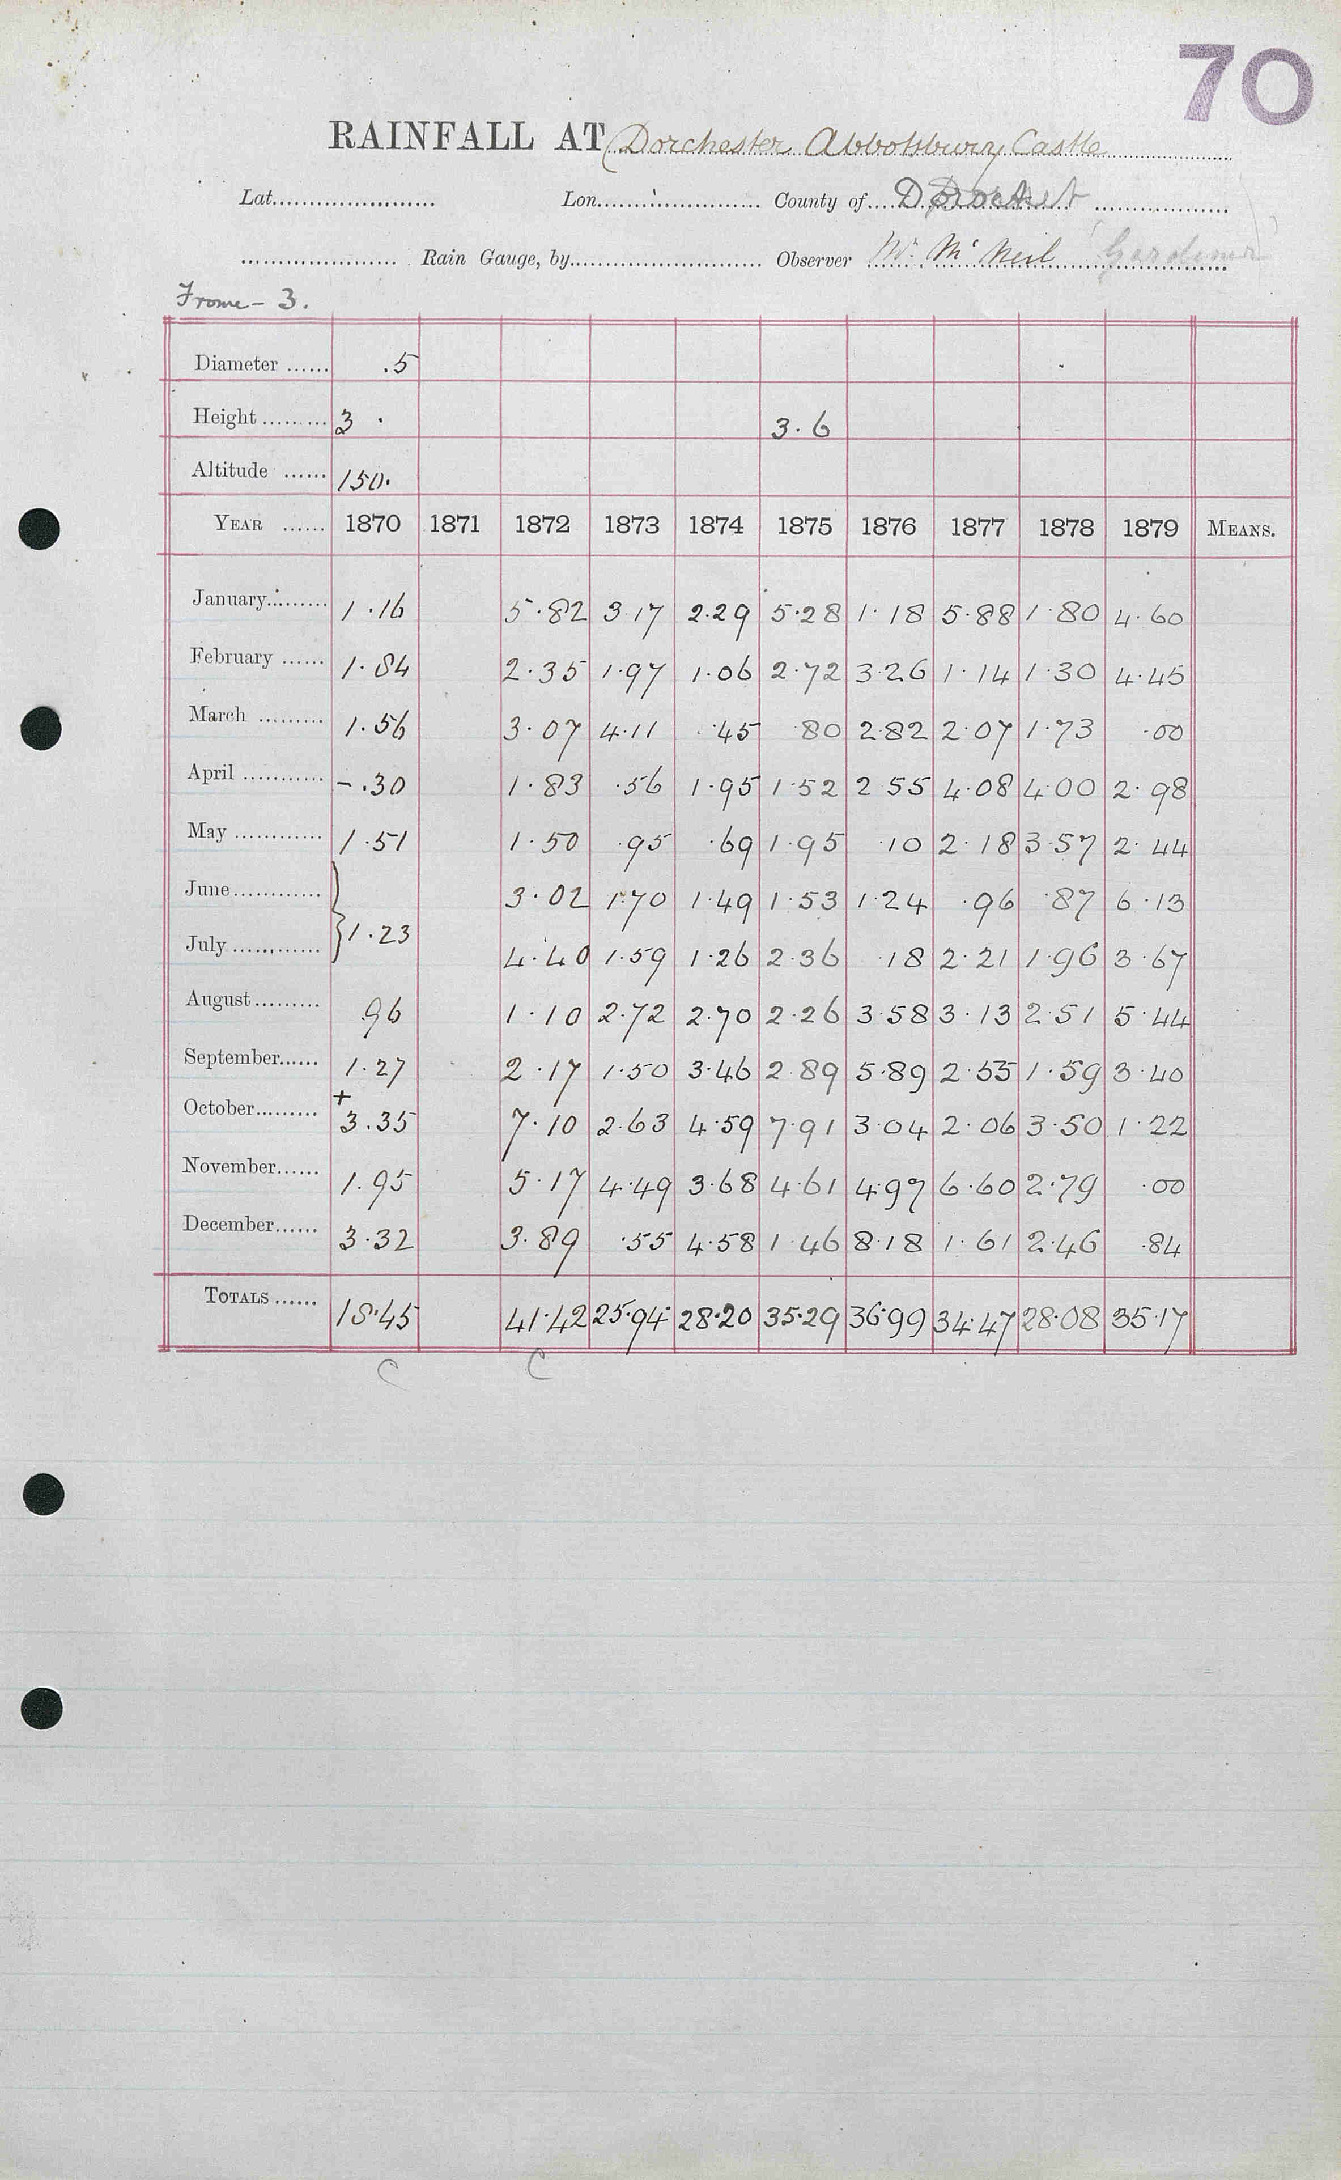 70
RAINFALL AT (Dorchester) Abbotsbury Castle
Lat. Lon. County of Dorset
Rain Gauge, by Observer Mr. McNeil (Gardener)
Frome - 3.
Diameter .5
Height 3 . 3.6
Altitude 150.
YEAR 1870 1871 1872 1873 1874 1875 1876 1877 1878 1879 MEANS.
January 1.16 5.82 3.17 2.29 5.28 1.18 5.88 1.80 4.60
February 1.84 2.35 1.97 1.06 2.72 3.26 1.14 1.30 4.45
March 1.56 3.07 4.11 .45 .80 2.82 2.07 1.73 .00
April -.30 1.83 .56 1.95 1.52 2.55 4.08 4.00 2.98
May 1.51 1.50 .95 .69 1.95 .10 2.18 3.57 2.44
June 3.02 1.70 1.49 1.53 1.24 .96 .87 6.13
July } 1.23 4.40 1.59 1.26 2.36 .18 2.21 1.96 3.67
August .96 1.10 2.72 2.70 2.26 3.58 3.13 2.51 5.44
September 1.27 2.17 1.50 3.46 2.89 5.89 2.55 1.59 3.40
October + 3.35 7.10 2.63 4.59 7.91 3.04 2.06 3.50 1.22
November 1.95 5.17 4.49 3.68 4.61 4.97 6.60 2.79 .00
December 3.32 3.89 .55 4.58 1.46 8.18 1.61 2.46 .84
TOTALS 18.45 41.42 25.94 28.20 35.29 36.99 34.47 28.08 35.17
C C